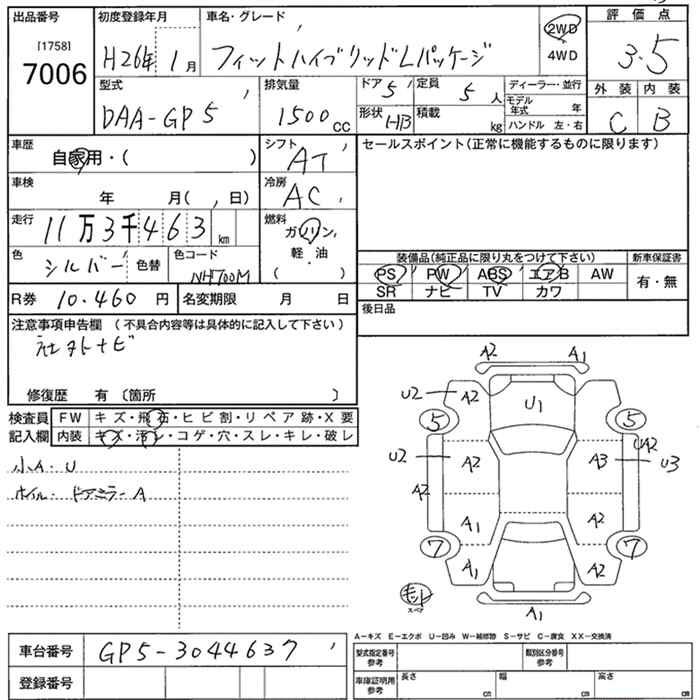 出品番号
[1758]
7006
初度登録年月
H26年 1月
車名・グレード
フィットハイブリッドLパッケージ
2WD
4WD
評価点
3.5
型式
DAA-GP5
排気量
1500cc
ドア 5
定員 5人
形状 HB
積載 kg
ディーラー・並行
モデル年式 年
ハンドル 左・右
外装 内装
C B
車歴
自家用・( )
シフト
AT
セールスポイント(正常に機能するものに限ります)
車検
年 月( , 日)
冷房
AC
走行
11万3千463km
燃料
ガソリン
軽・油
( ・ )
色
シルバー
色替
色コード
NH700M
装備品(純正品に限り丸をつけて下さい)
新車保証書
PS PW ABS エアB AW
SR ナビ TV カワ
有・無
R券 10.460円
名変期限 月 日
後日品
注意事項申告欄 (不具合内容等は具体的に記入して下さい)
社外ナビ
修復歴 有〔箇所 〕
検査員記入欄
FW キズ・飛石・ヒビ割・リペア跡・X要
内装 キズ・汚レ・コゲ・穴・スレ・キレ・破レ
小A・U
ホイル・ドアミラーA
A2 A1
U2 A2 U1
5 5
U2 A2 A3 UA2 U3
A2
A1 A2
7 7
A1 A2
スペア
A1
A-キズ E-エクボ U-凹み W-補修跡 S-サビ C-腐食 XX-交換済
車台番号 GP5-3044637
登録番号
型式指定番号
参考
類別区分番号
参考
車庫証明用
参考
長さ cm 幅 cm 高さ cm